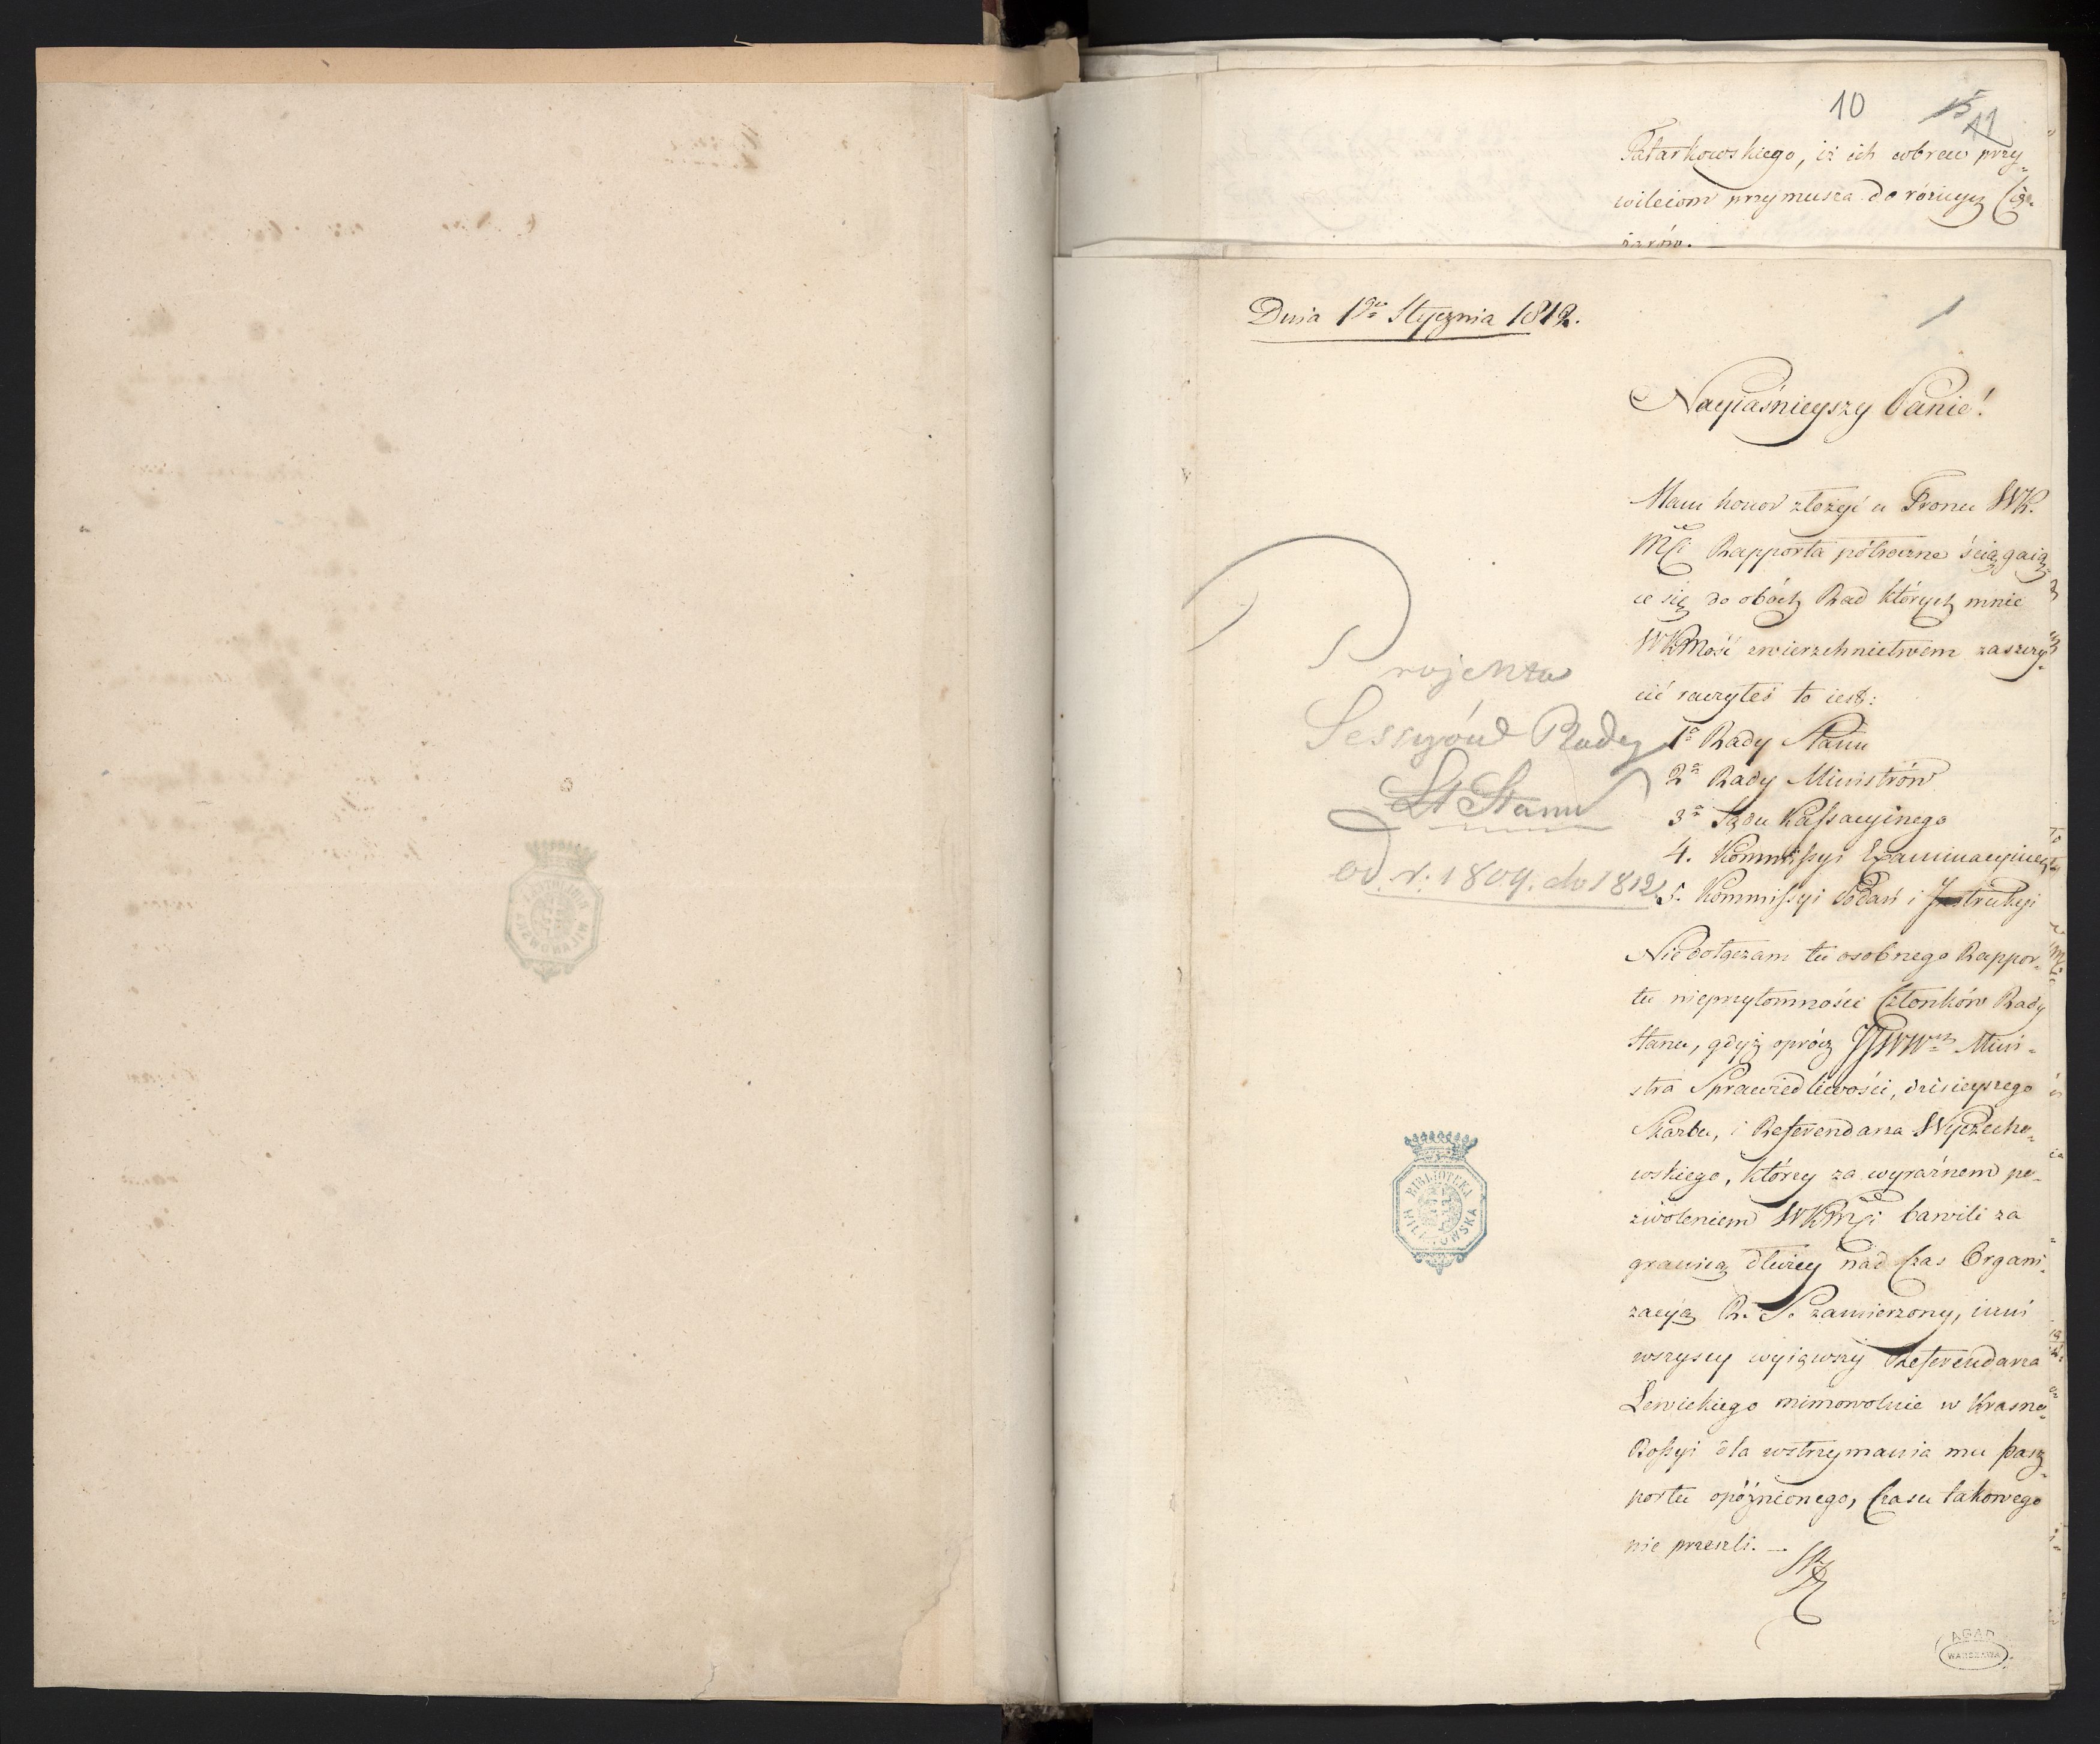 10
15
11
Tatarkowskiego, iż ich wbrew przy„
wileiom przymusza do róźnych Cię„
żarów. —
Dnia 1go Stycznia 1812.
1
Nayiaśnieyszy Panie!
Mam honor złożyć u Tronu WK.
Mći Rapporta półroczne ściągaią„
ce się do obóch Rad których mnie
WKMość zwierzchnictwem zaszczy„
cić raczyłeś to iest:
1o Rady Stanu
2o Rady Ministrów
3o Sądu Kassacyinego
4. Kommissyi Examinacyiney
5. Kommissyi Podań i Instrukcyi
Nie dołączam tu osobnego Rappor„
tu nieprzytomności Członków Rady
Stanu, gdyż oprócz JJWWch Mini„
stra Sprawiedliwości, dzisieyszego
Skarbu, i Referendarza Wyczecho„
wskiego, którzy za wyraźnem po„
zwoleniem WKMći bawili za
granicą dłużey nad Czas Organi„
zacyą R. S. zamierzony, inni
wszyscy wyiąwszy Referendarza
Lewickiego mimowolnie w Krasno„
Rossyi dla wstrzymania mu pasz„
portu opóźnionego, Czasu takowego
nie przeszli. —
Projekta
Sessyów Rady
Stanu
od r. 1809. do 1812.
BIBLIOTEKA
WILANOWSKA
BIBLIOTEKA
WILANOWSKA
AGAD
WARSZAWA